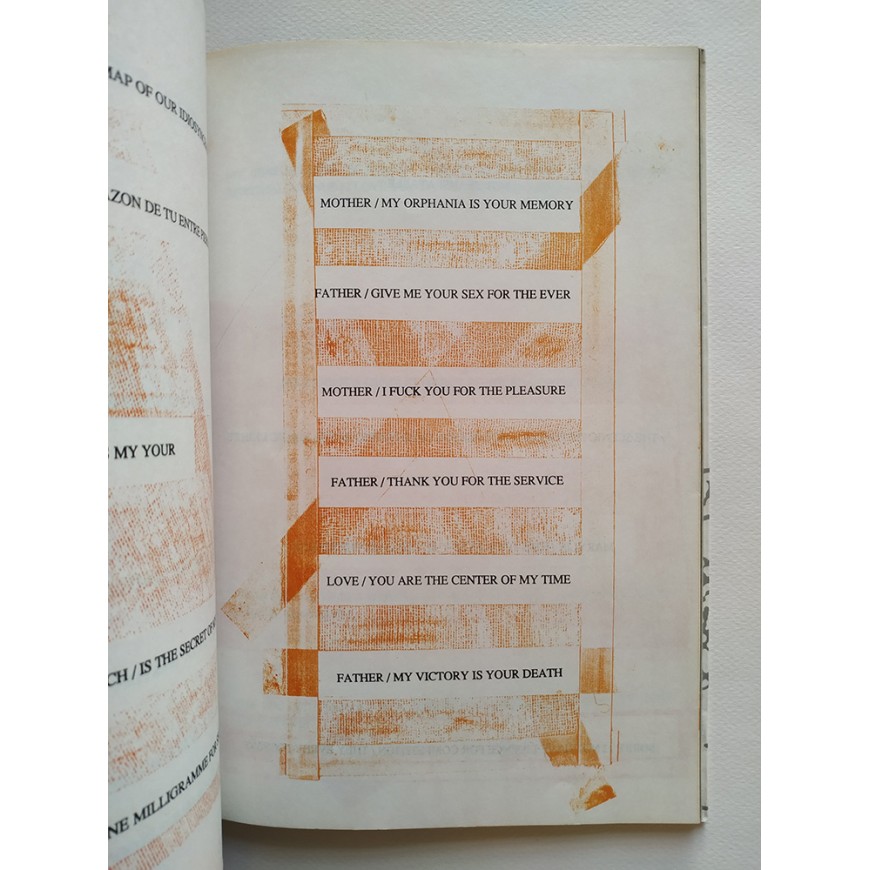 MAP OF OUR
DE TU ENTRE
MY YOUR
/ IS THE SECRET
MILLIGRAMME
MOTHER / MY ORPHANIA IS YOUR MEMORY
FATHER / GIVE ME YOUR SEX FOR THE EVER
MOTHER / I FUCK YOU FOR THE PLEASURE
FATHER / THANK YOU FOR THE SERVICE
LOVE / YOU ARE THE CENTER OF MY TIME
FATHER / MY VICTORY IS YOUR DEATH